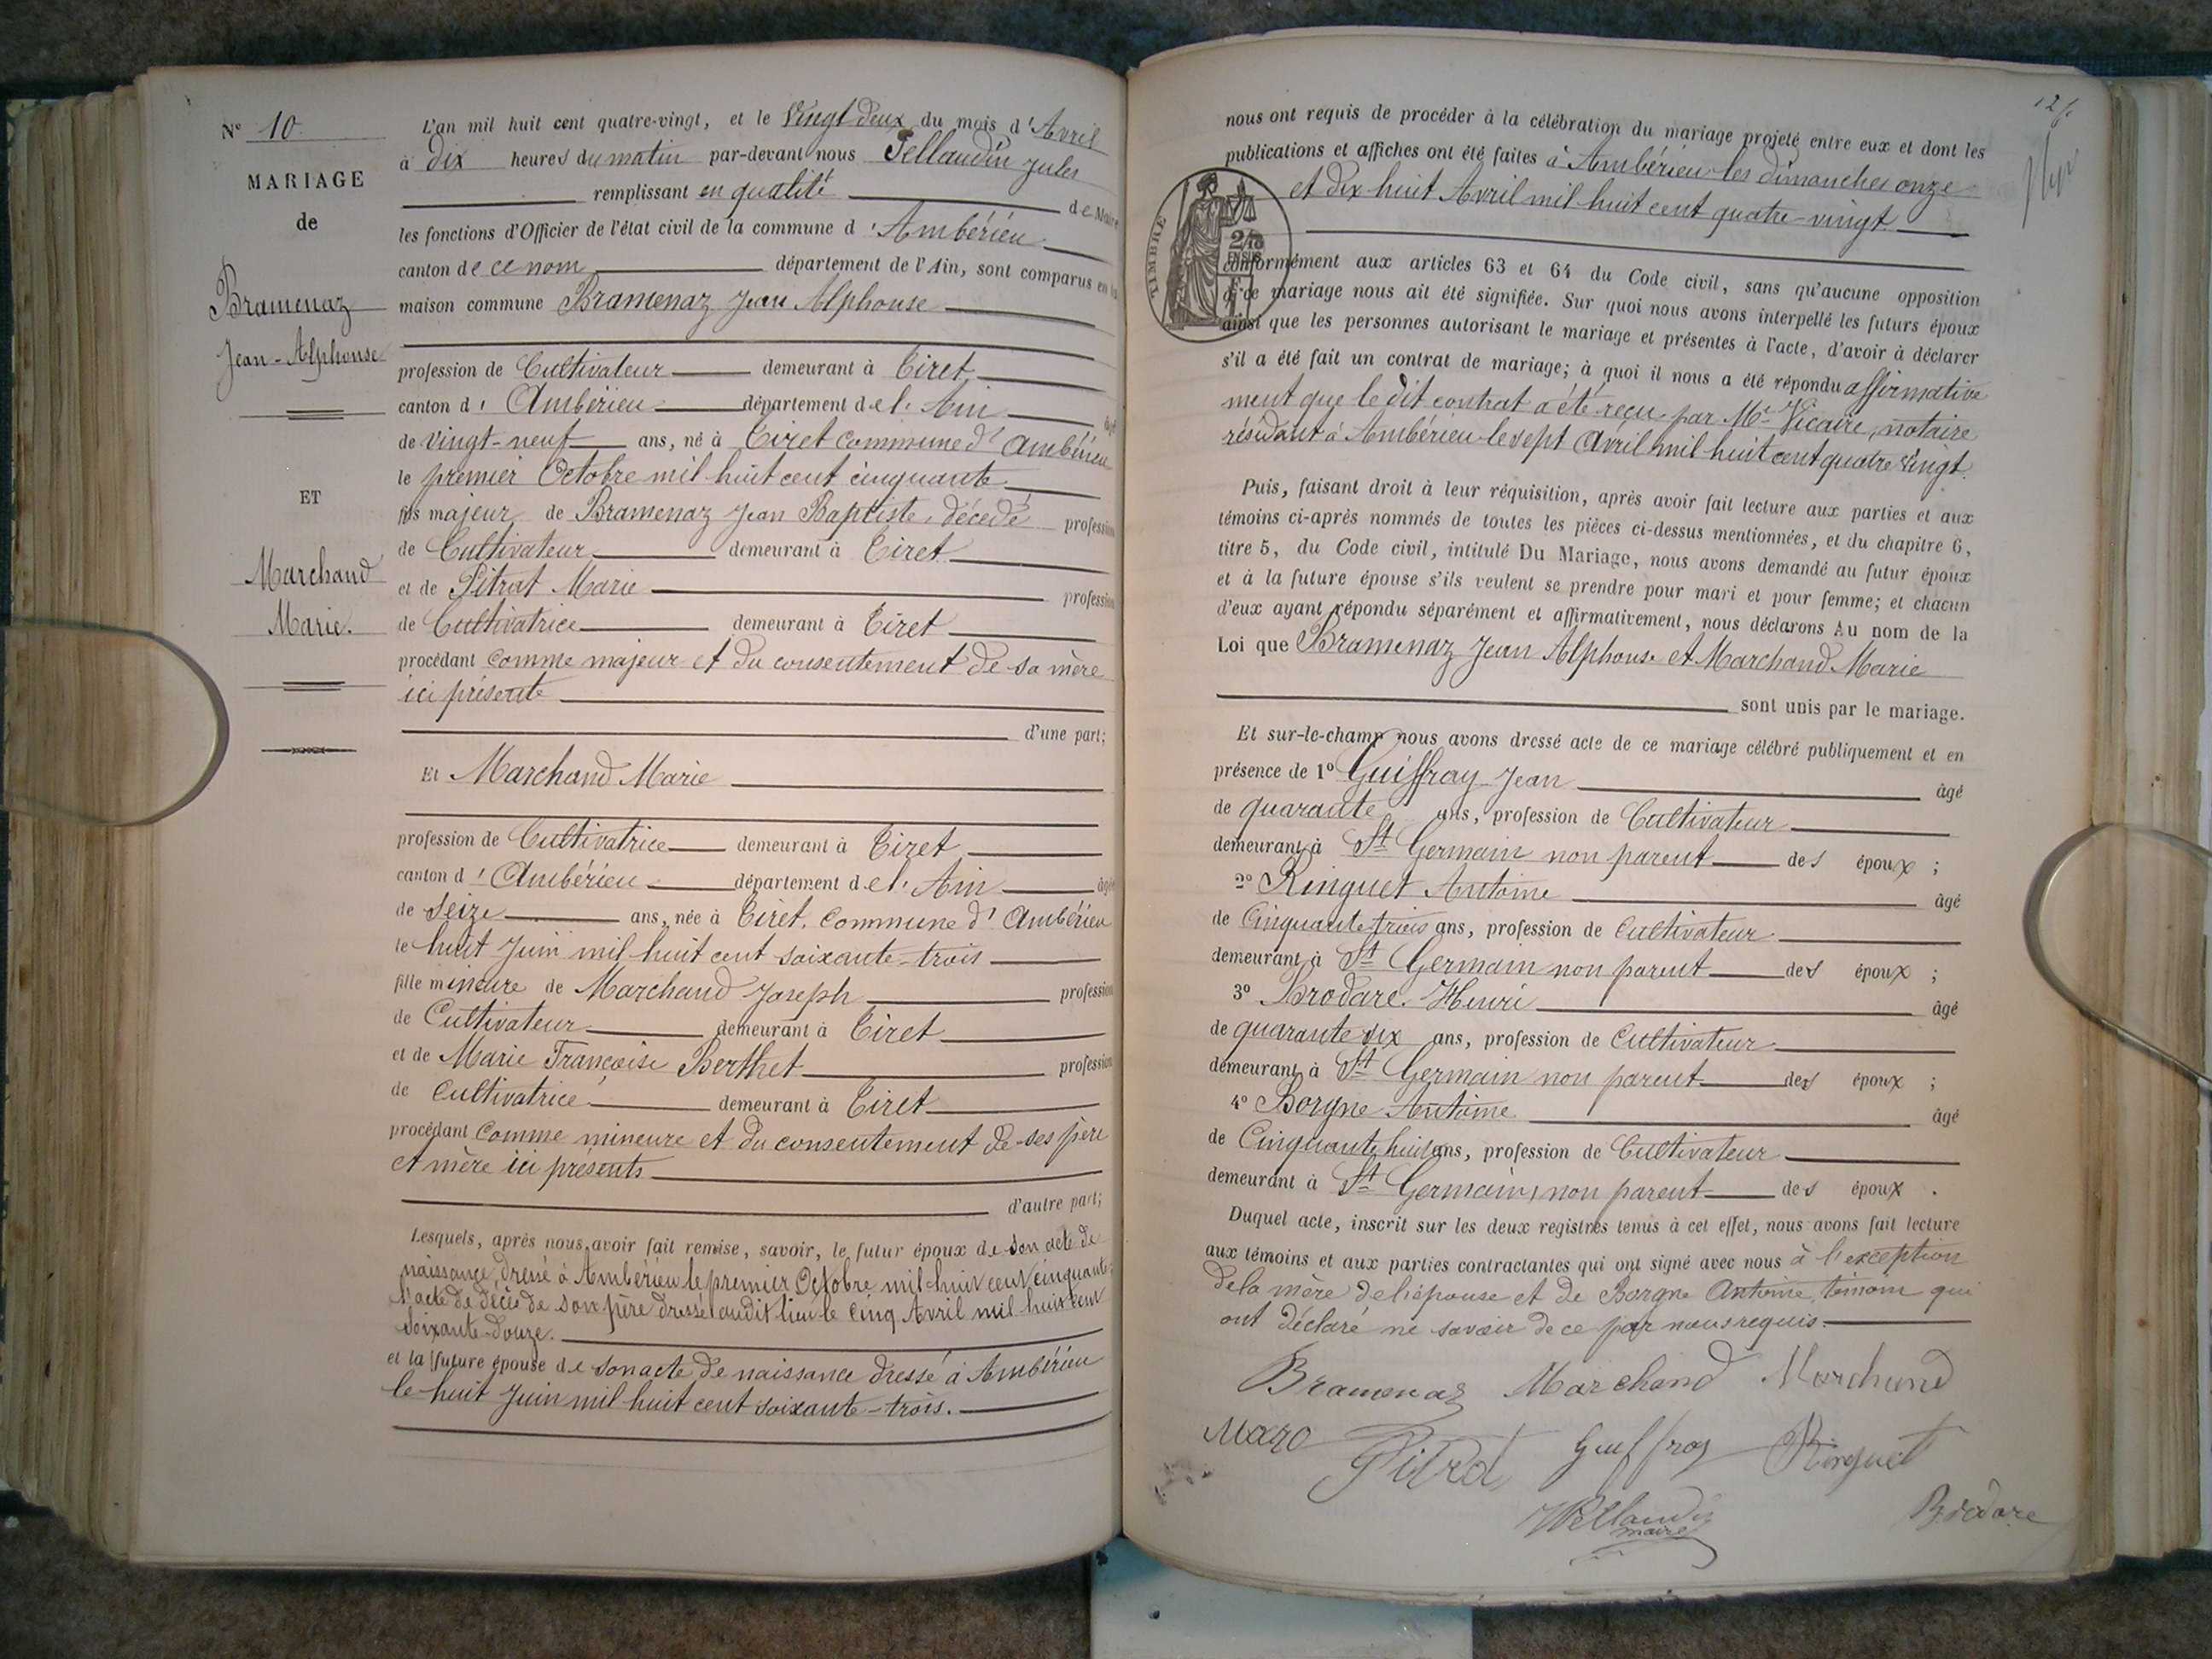 Nº 10
MARIAGE
de
Bramenaz
Jean-Alphonse
ET
Marchand
Marie.
L'an mil huit cent quatre-vingt, et le Vingt deux du mois d'Avril
à dix heures du matin par-devant nous Pellaudin Jules
remplissant en qualité de Maire
les fonctions d'Officier de l'état civil de la commune d'Ambérieu
canton de ce nom département de l'Ain, sont comparus en la
maison commune Bramenaz Jean Alphonse
profession de Cultivateur demeurant à Tiret
canton d'Ambérieu département de l'Ain âgé
de vingt-neuf ans, né à Tiret commune d'Ambérieu
le premier Octobre mil huit cent cinquante
fils majeur de Bramenaz Jean Baptiste, décédé profession
de Cultivateur demeurant à Tiret
et de Pitrat Marie profession
de Cultivatrice demeurant à Tiret
procédant comme majeur et du consentement de sa mère
ici présente
d'une part;
Et Marchand Marie
profession de Cultivatrice demeurant à Tiret
canton d'Ambérieu département de l'Ain âgée
de seize ans, née à Tiret, commune d'Ambérieu
le huit Juin mil huit cent soixante-trois
fille mineure de Marchand Joseph profession
de Cultivateur demeurant à Tiret
et de Marie Françoise Berthet profession
de Cultivatrice demeurant à Tiret
procédant comme mineure et du consentement de ses père
et mère ici présents
d'autre part;
Lesquels, après nous avoir fait remise, savoir, le futur époux de son acte de
naissance, dressé à Ambérieu le premier Octobre mil huit cent cinquante;
l'acte de décès de son père dressé audit lieu le cinq Avril mil huit cent
soixante-douze.
et la future épouse de son acte de naissance dressé à Ambérieu
le huit Juin mil huit cent soixante-trois.
nous ont requis de procéder à la célébration du mariage projeté entre eux et dont les
publications et affiches ont été faites à Ambérieu les dimanches onze
et dix huit Avril mil huit cent quatre-vingt
TIMBRE
conformément aux articles 63 et 64 du Code civil, sans qu'aucune opposition
à ce mariage nous ait été signifiée. Sur quoi nous avons interpellé les futurs époux
ainsi que les personnes autorisant le mariage et présentes à l'acte, d'avoir à déclarer
s'il a été fait un contrat de mariage; à quoi il nous a été répondu affirmative
ment que le dit contrat a été reçu par Me Vicaire, notaire
résidant à Ambérieu le sept Avril mil huit cent quatre vingt.
Puis, faisant droit à leur réquisition, après avoir fait lecture aux parties et aux
témoins ci-après nommés de toutes les pièces ci-dessus mentionnées, et du chapitre 6,
titre 5, du Code civil, intitulé Du Mariage, nous avons demandé au futur époux
et à la future épouse s'ils veulent se prendre pour mari et pour femme; et chacun
d'eux ayant répondu séparément et affirmativement, nous déclarons Au nom de la
Loi que Bramenaz Jean Alphonse et Marchand Marie
sont unis par le mariage.
Et sur-le-champ nous avons dressé acte de ce mariage célébré publiquement et en
présence de 1º Guiffray Jean âgé
de quarante ans, profession de Cultivateur
demeurant à St Germain non parent des époux ;
2º Ringuet Antoine âgé
de Cinquante trois ans, profession de Cultivateur
demeurant à St Germain non parent des époux ;
3º Brodare Henri âgé
de quarante six ans, profession de Cultivateur
demeurant à St Germain non parent des époux ;
4º Borgne Antoine âgé
de Cinquante huit ans, profession de Cultivateur
demeurant à St Germain, non parent des époux .
Duquel acte, inscrit sur les deux registres tenus à cet effet, nous avons fait lecture
aux témoins et aux parties contractantes qui ont signé avec nous à l'exception
de la mère de l'épouse et de Borgne Antoine, témoin qui
ont déclaré ne savoir de ce par nous requis.
Bramenaz Marchand Marchand
Pitrat Guiffray Ringuet
JPellaudin Brodare
maire